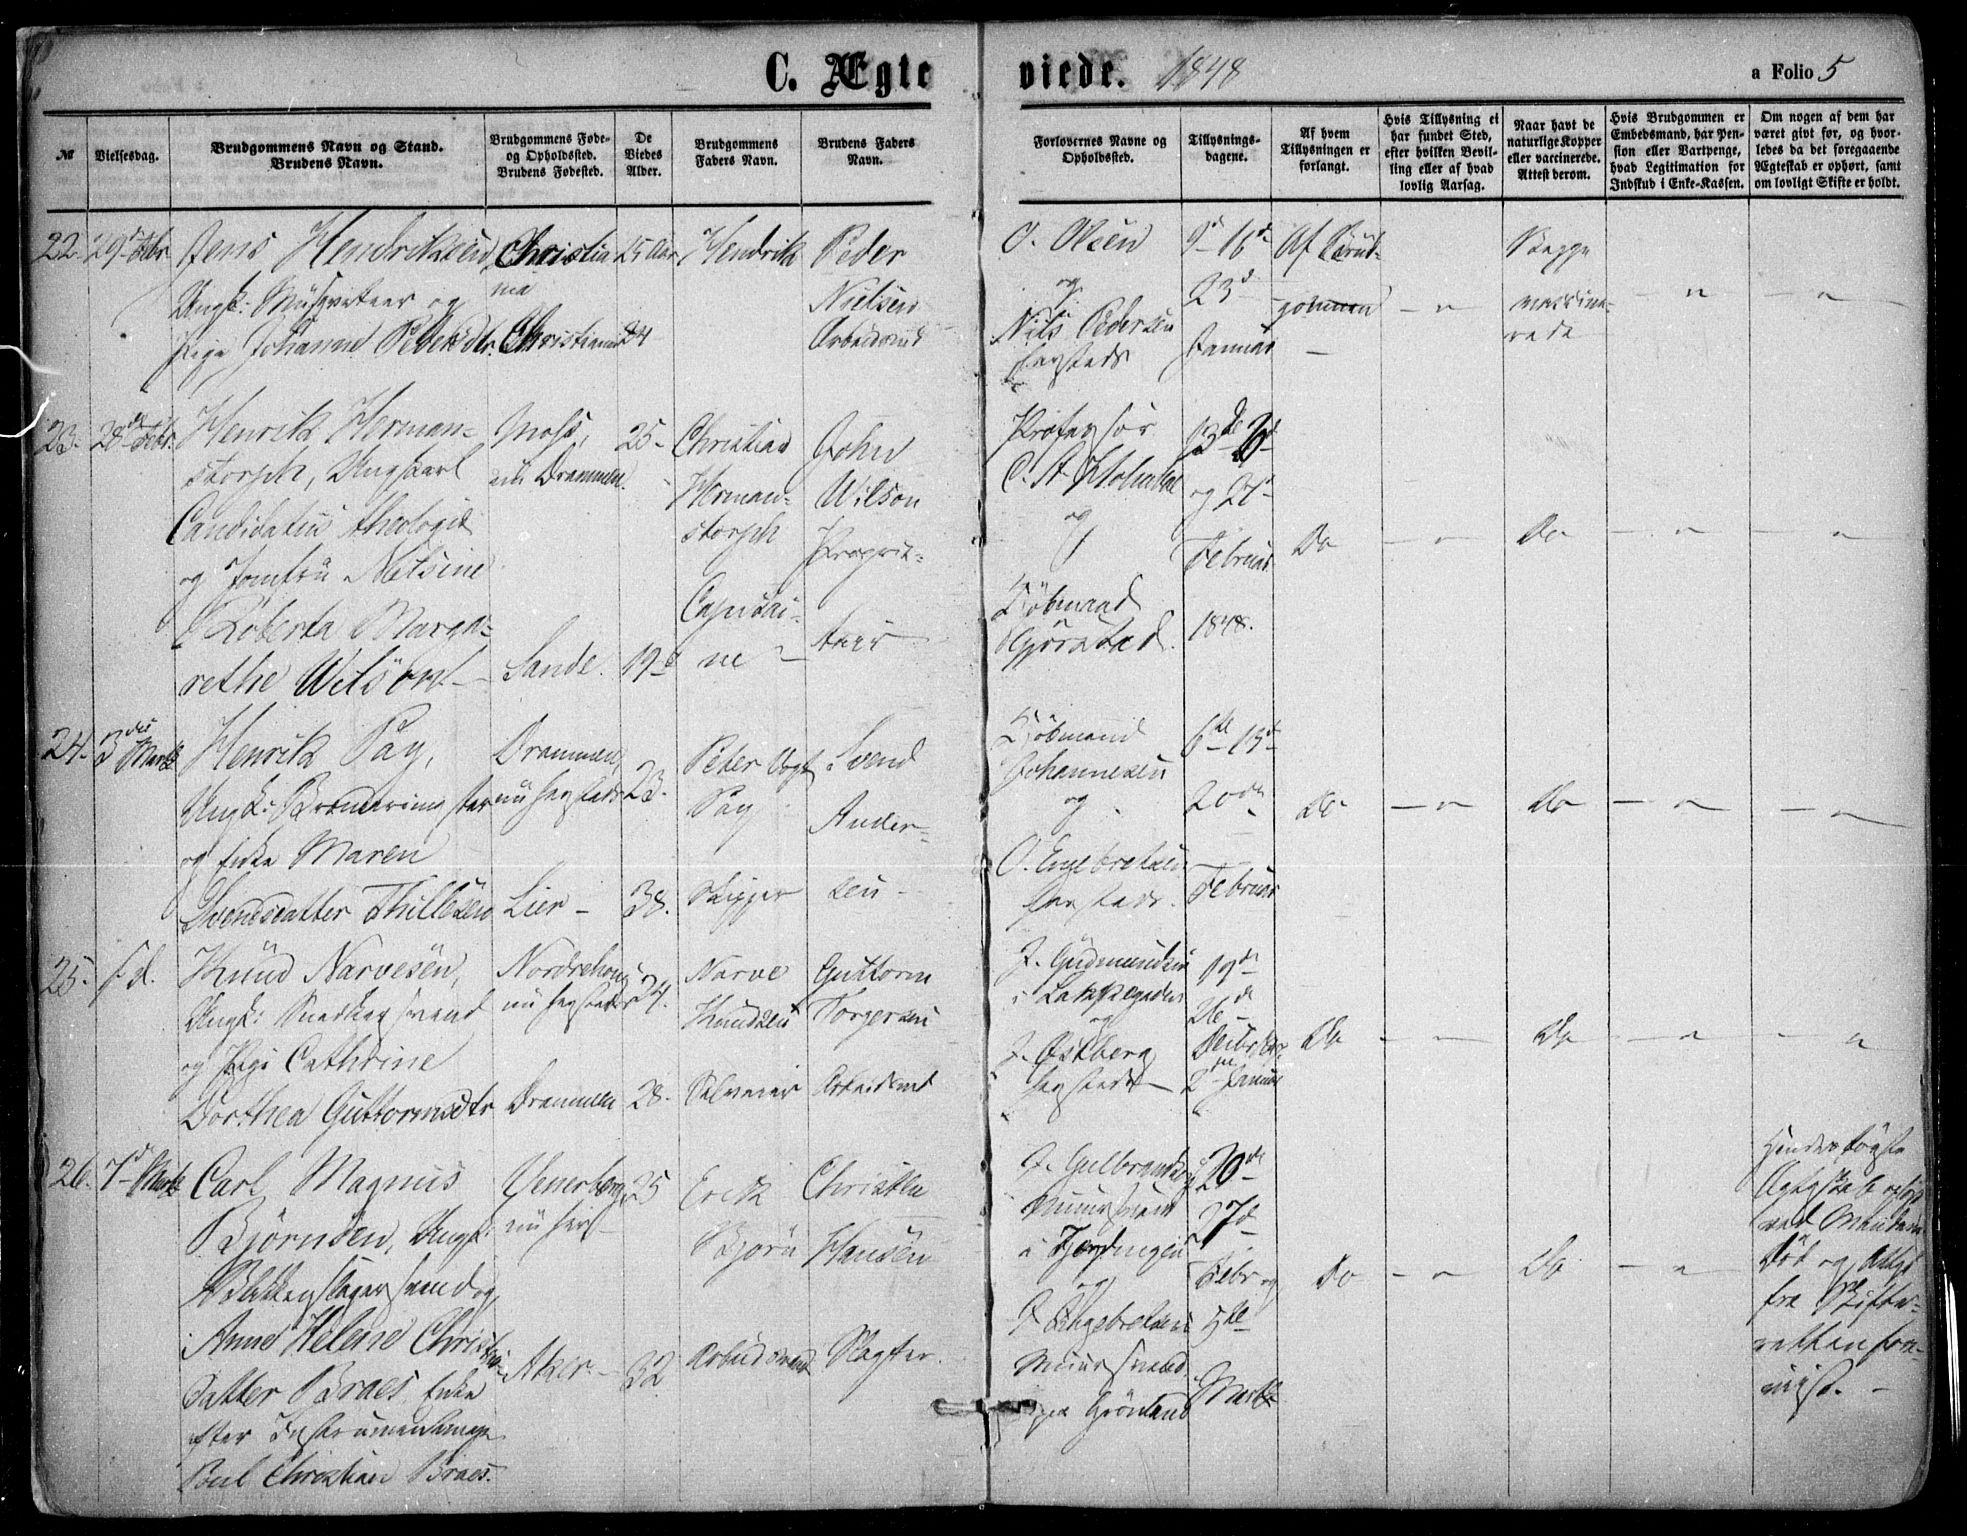 C. Ægte viede. 1848
a Folio 5
№
Vielsesdag.
Brudgommens Navn og Stand.
Brudens Navn.
Brudgommens Føde-
og Opholdssted.
Brudens Fødested.
De
Viedes
Alder.
Brudgommens
Faders Navn.
Brudens Faders
Navn.
Forlovernes Navne og
Opholdssted.
Tillysnings-
dagene.
Af hvem
Tillysningen er
forlangt.
Hvis Tillysning ei
har fundet Sted,
efter hvilken Bevil-
ling eller af hvad
lovlig Aarsag.
Naar havt de
naturlige Kopper
eller vaccinerede.
Attest derom.
Hvis Brudgommen er
Embedsmand, har Pen-
sion eller Vartpenge,
hvad Legitimation for
Indskud i Enke-Kassen.
Om nogen af dem har
været givt før, og hvor-
ledes da det foregaaende
Ægteskab er ophørt, samt
om lovligt Skifte er holdt.
22.
29de Febr
Jens Hendriksen
Ungk: Musqveteer og
Pige Johanne Pedersdtr.
Christia
nia
Christiania
25 Aar
24
Hendrik
Peder
Nielsen
Arbeidsmd
O. Olsen
og
Nils Pedersen
hersteds
9de 16de
23de
Januar
Af Brud-
gommen
Begge
vaccine-
rede
23.
28de Febr.
Henrik Herman-
storph, Ungkarl
Candidatus theologiæ
og Jomfru Nilsine
Roberta Marga-
rethe Wilson
Moss,
nu Drammen.
Sande.
25
19
Christian
Herman-
storph
Capitai-
ne
John
Wilson
Proprie-
tair
Professor
og
Kjøbmand
13de 20de
og 27de
Februar
1848.
Do
Do
24.
3die Marts
Henrik Pay,
Ungk:
og Enke Maren
Svendsdatter Thillesen
Drammen,
nu hersteds
Lier
23.
38.
Peter Vogt
Pay
Skipper
Svend
Ander-
sen
Kjøbmand
Johannesen
og
O. Engebretsen
hersteds.
6te 13de
20de
Februar
Do
Do
25.
s. d.
Knud Narvesen,
Ungk: Snedkersvend
og Pige Cathrine
Dorthea Guttormsdtr
Norderhoug
nu hersteds
Drammen
24.
28.
Narve
Knudsen
Selveier
Guttorm
Torgersen
Arbeidsmd
J. Gudmundsen
i Lakkegaden
og
J. Østberg
hersteds
19de
26de
Decbr.
2den Januar
Do
Do
26.
7de Marts
Carl Magnus
Bjørnsen, Ungk:
Blikkenslagersvend og
Anne Helene Christen-
datter Braes, Enke
efter Instrumentmager
Poul Christian Braes.
Venersborg
nu her
Aker.
25
32
Erik
Bjørn
Arbeidsmand
Christen
Hansen
Slagter.
J. Gulbrandsen
Muursvend
i Fjerdingen
og
Engebretsen
Muursvend
paa Grønland
20de
27de
Febr og
5te
Marts
Do
Do
Hendes første
Ægteskab opløst
ved Mandens
Død og Attest
fra Skifte-
retten fore-
vist.